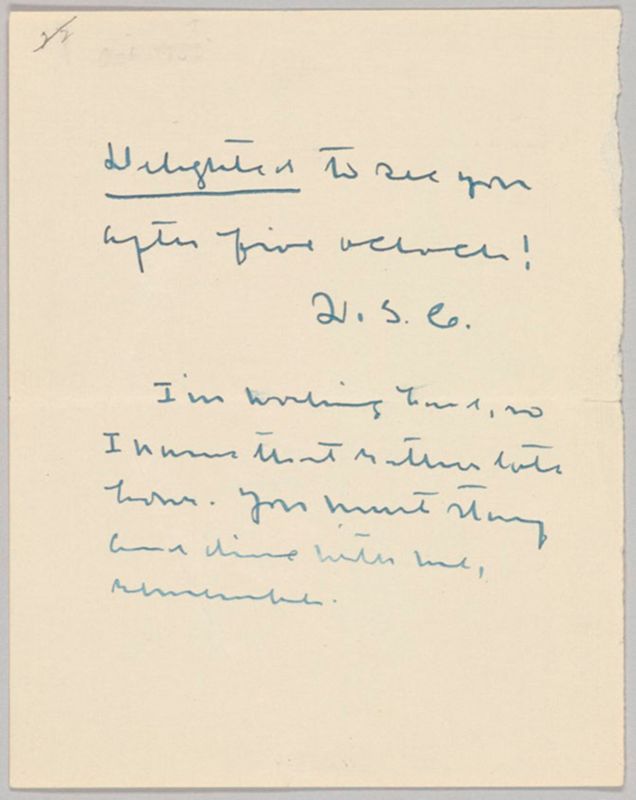 22
Delighted to see you
after five oclock!
W. S. C.
I'm working hard, so
I name that rather late
hour. You must stay
and dine with me,
remember.